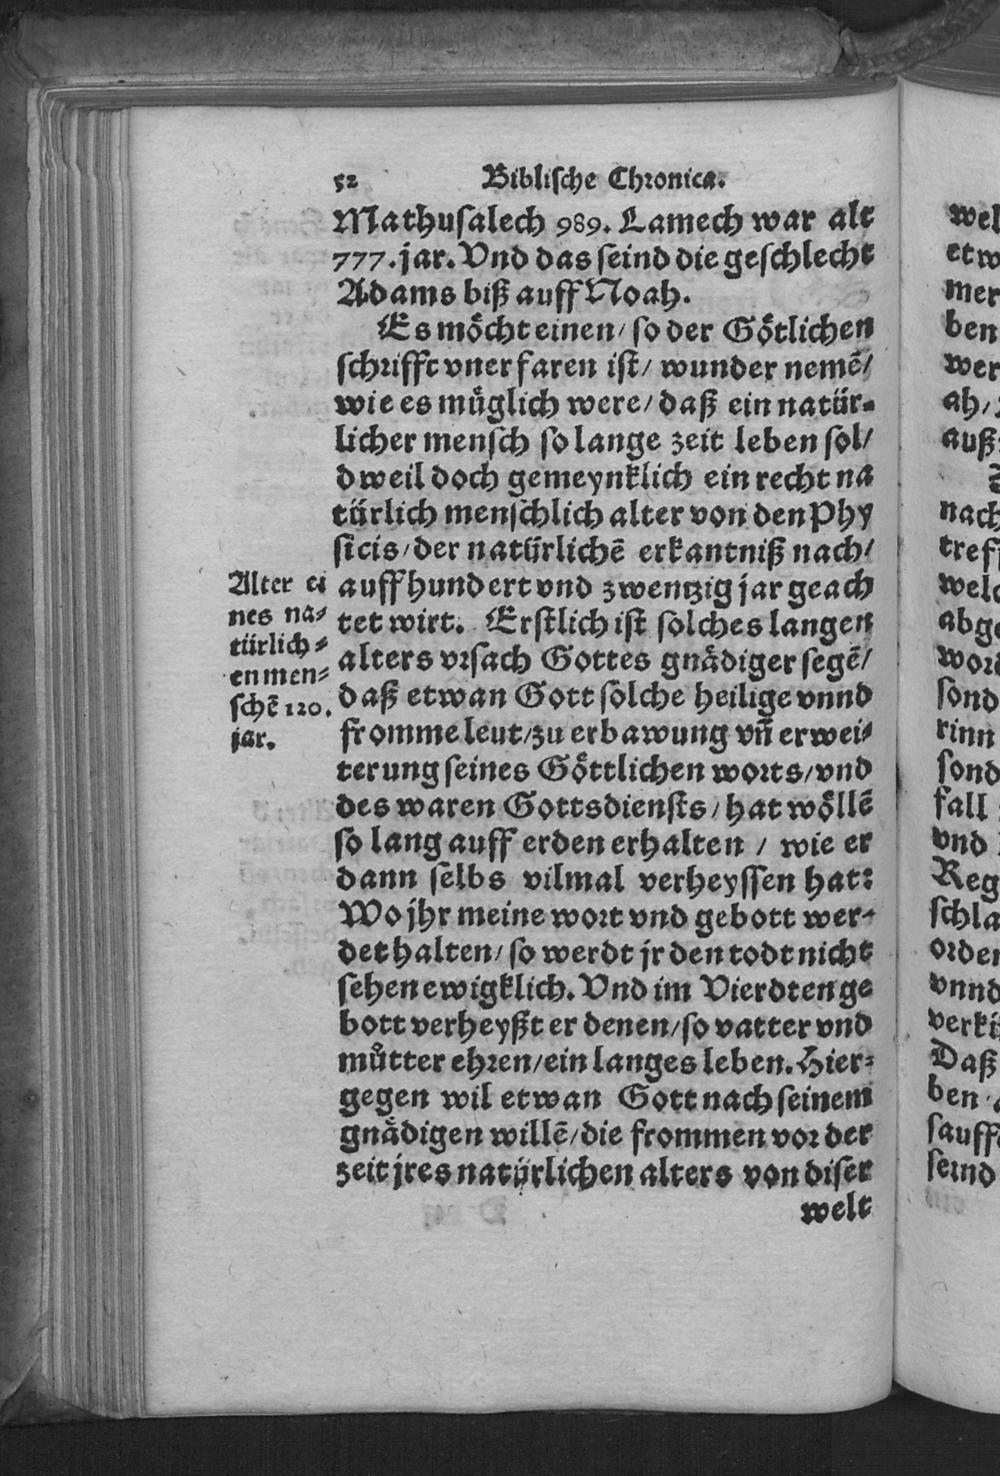 52 Biblische Chronica.
Mathusalech 989. Lamech war alt
777. jar. Vnd das seind die geschlecht
Adams biß auff Noah.
Es möcht einen/ so der Götlichen
schrifft vnerfaren ist/ wunder nemẽ/
wie es müglich were/ daß ein natür-
licher mensch so lange zeit leben sol/
dweil doch gemeynklich ein recht na
türlich menschlich alter von den Phy
sicis/ der natürlichẽ erkantniß nach/
auff hundert vnd zwentzig jar geach
tet wirt. Erstlich ist solches langen
alters vrsach Gottes gnädiger segẽ/
daß etwan Gott solche heilige vnnd
fromme leut/ zu erbawung vñ erwei-
terung seines Göttlichen worts/ vnd
des waren Gottsdiensts/ hat wöllẽ
so lang auff erden erhalten / wie er
dann selbs vilmal verheyssen hat:
Wo jhr meine wort vnd gebott wer-
det halten/ so werdt jr den todt nicht
sehen ewigklich. Vnd im Vierdten ge
bott verheyßt er denen/ so vatter vnd
můtter ehren/ ein langes leben. Hier-
gegen wil etwan Gott nach seinem
gnädigen willẽ/ die frommen vor der
zeit jres natürlichen alters von diser
welt
Alter ei
nes na-
türlich-
en men-
schẽ 120.
jar.
wel
etw
mer
ben
wer
ah/
auß
nach
treff
welc
abge
word
sond
rinn
sond
fall
vnd
Reg
schla
orden
vnnd
verki
Daß
ben
sauff
seind